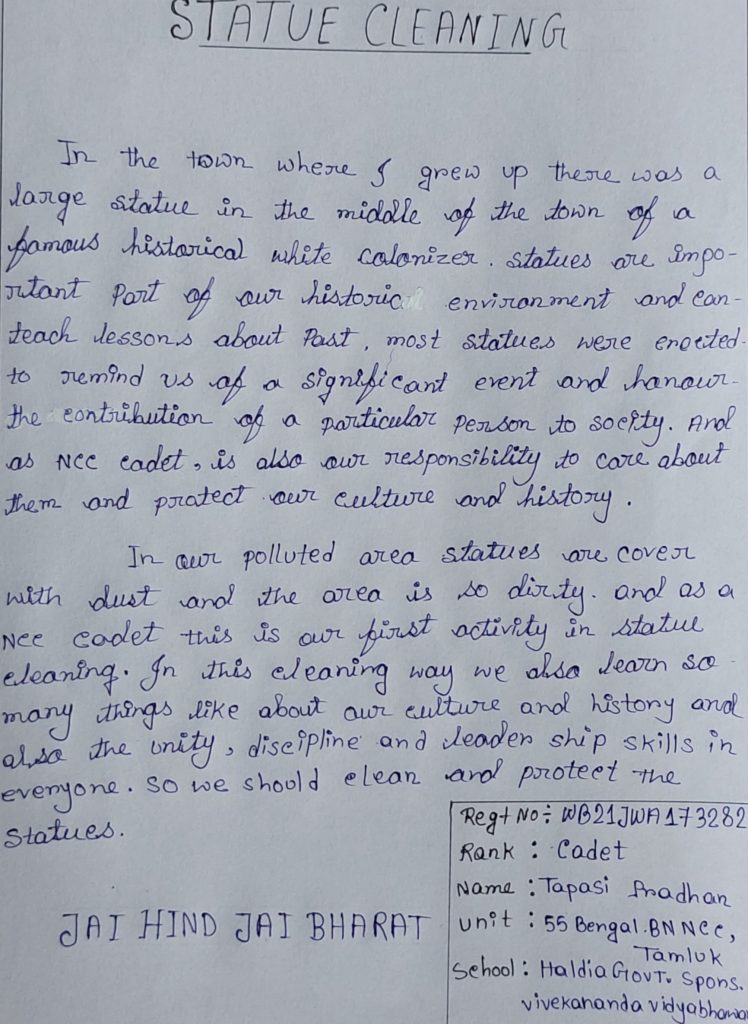 STATUE CLEANING
In the town where I grew up there was a
large statue in the middle of the town of a
famous historical white colonizer. Statues are impo-
rtant Part of our historic environment and can-
teach lessons about Past, most statues were erected-
to remind us of a significant event and hanour-
the contribution of a particular Person to socity. And
as NCC cadet, is also our responsibility to care about
them and protect our culture and history.
In our polluted area statues are cover
with dust and the area is so dirty. and as a
NCC cadet this is our first activity in statue
cleaning. In this cleaning way we also learn so-
many things like about our culture and history and
also the unity, discipline and leader ship skills in
everyone. So we should clean and protect the
Statues.
JAI HIND JAI BHARAT
Regt No:- WB21JWA173282
Rank : Cadet
Name : Tapasi Pradhan
Unit : 55 Bengal.BN NCC,
Tamluk
School : Haldia GOVT. Spons.
vivekananda vidyabhawa